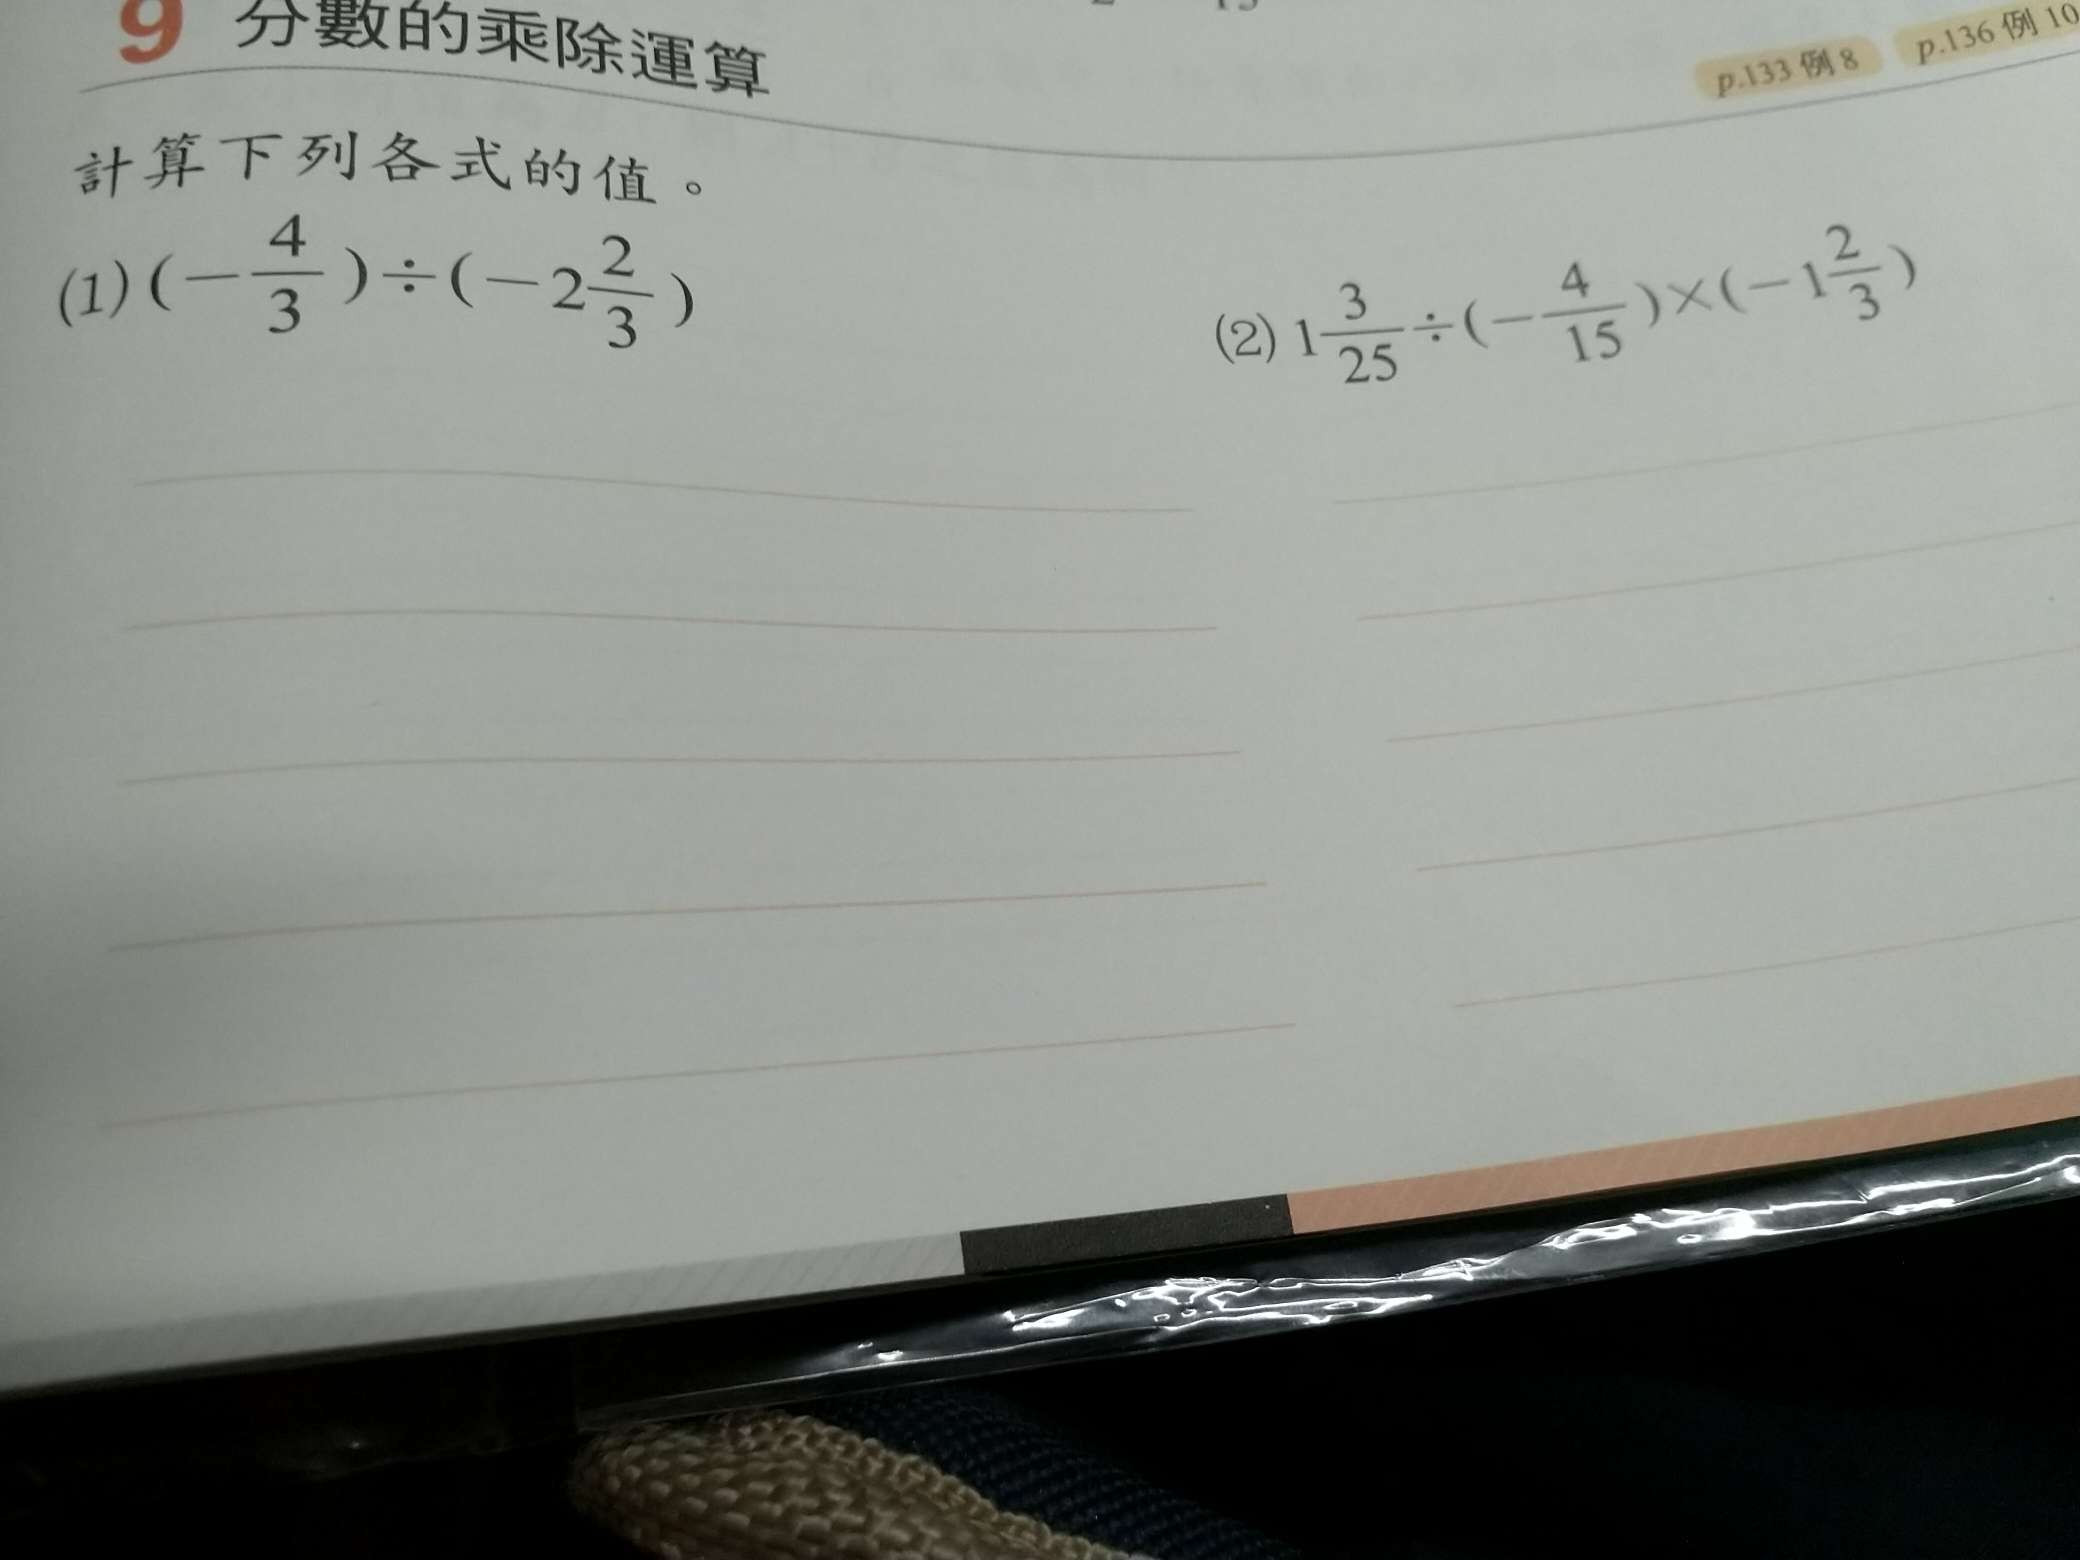 9 分數的乘除運算
p.133 例 8 p.136 例 10
計算下列各式的值。
(1) (−4/3)÷(−2 2/3)
(2) 1 3/25÷(−4/15)×(−1 2/3)